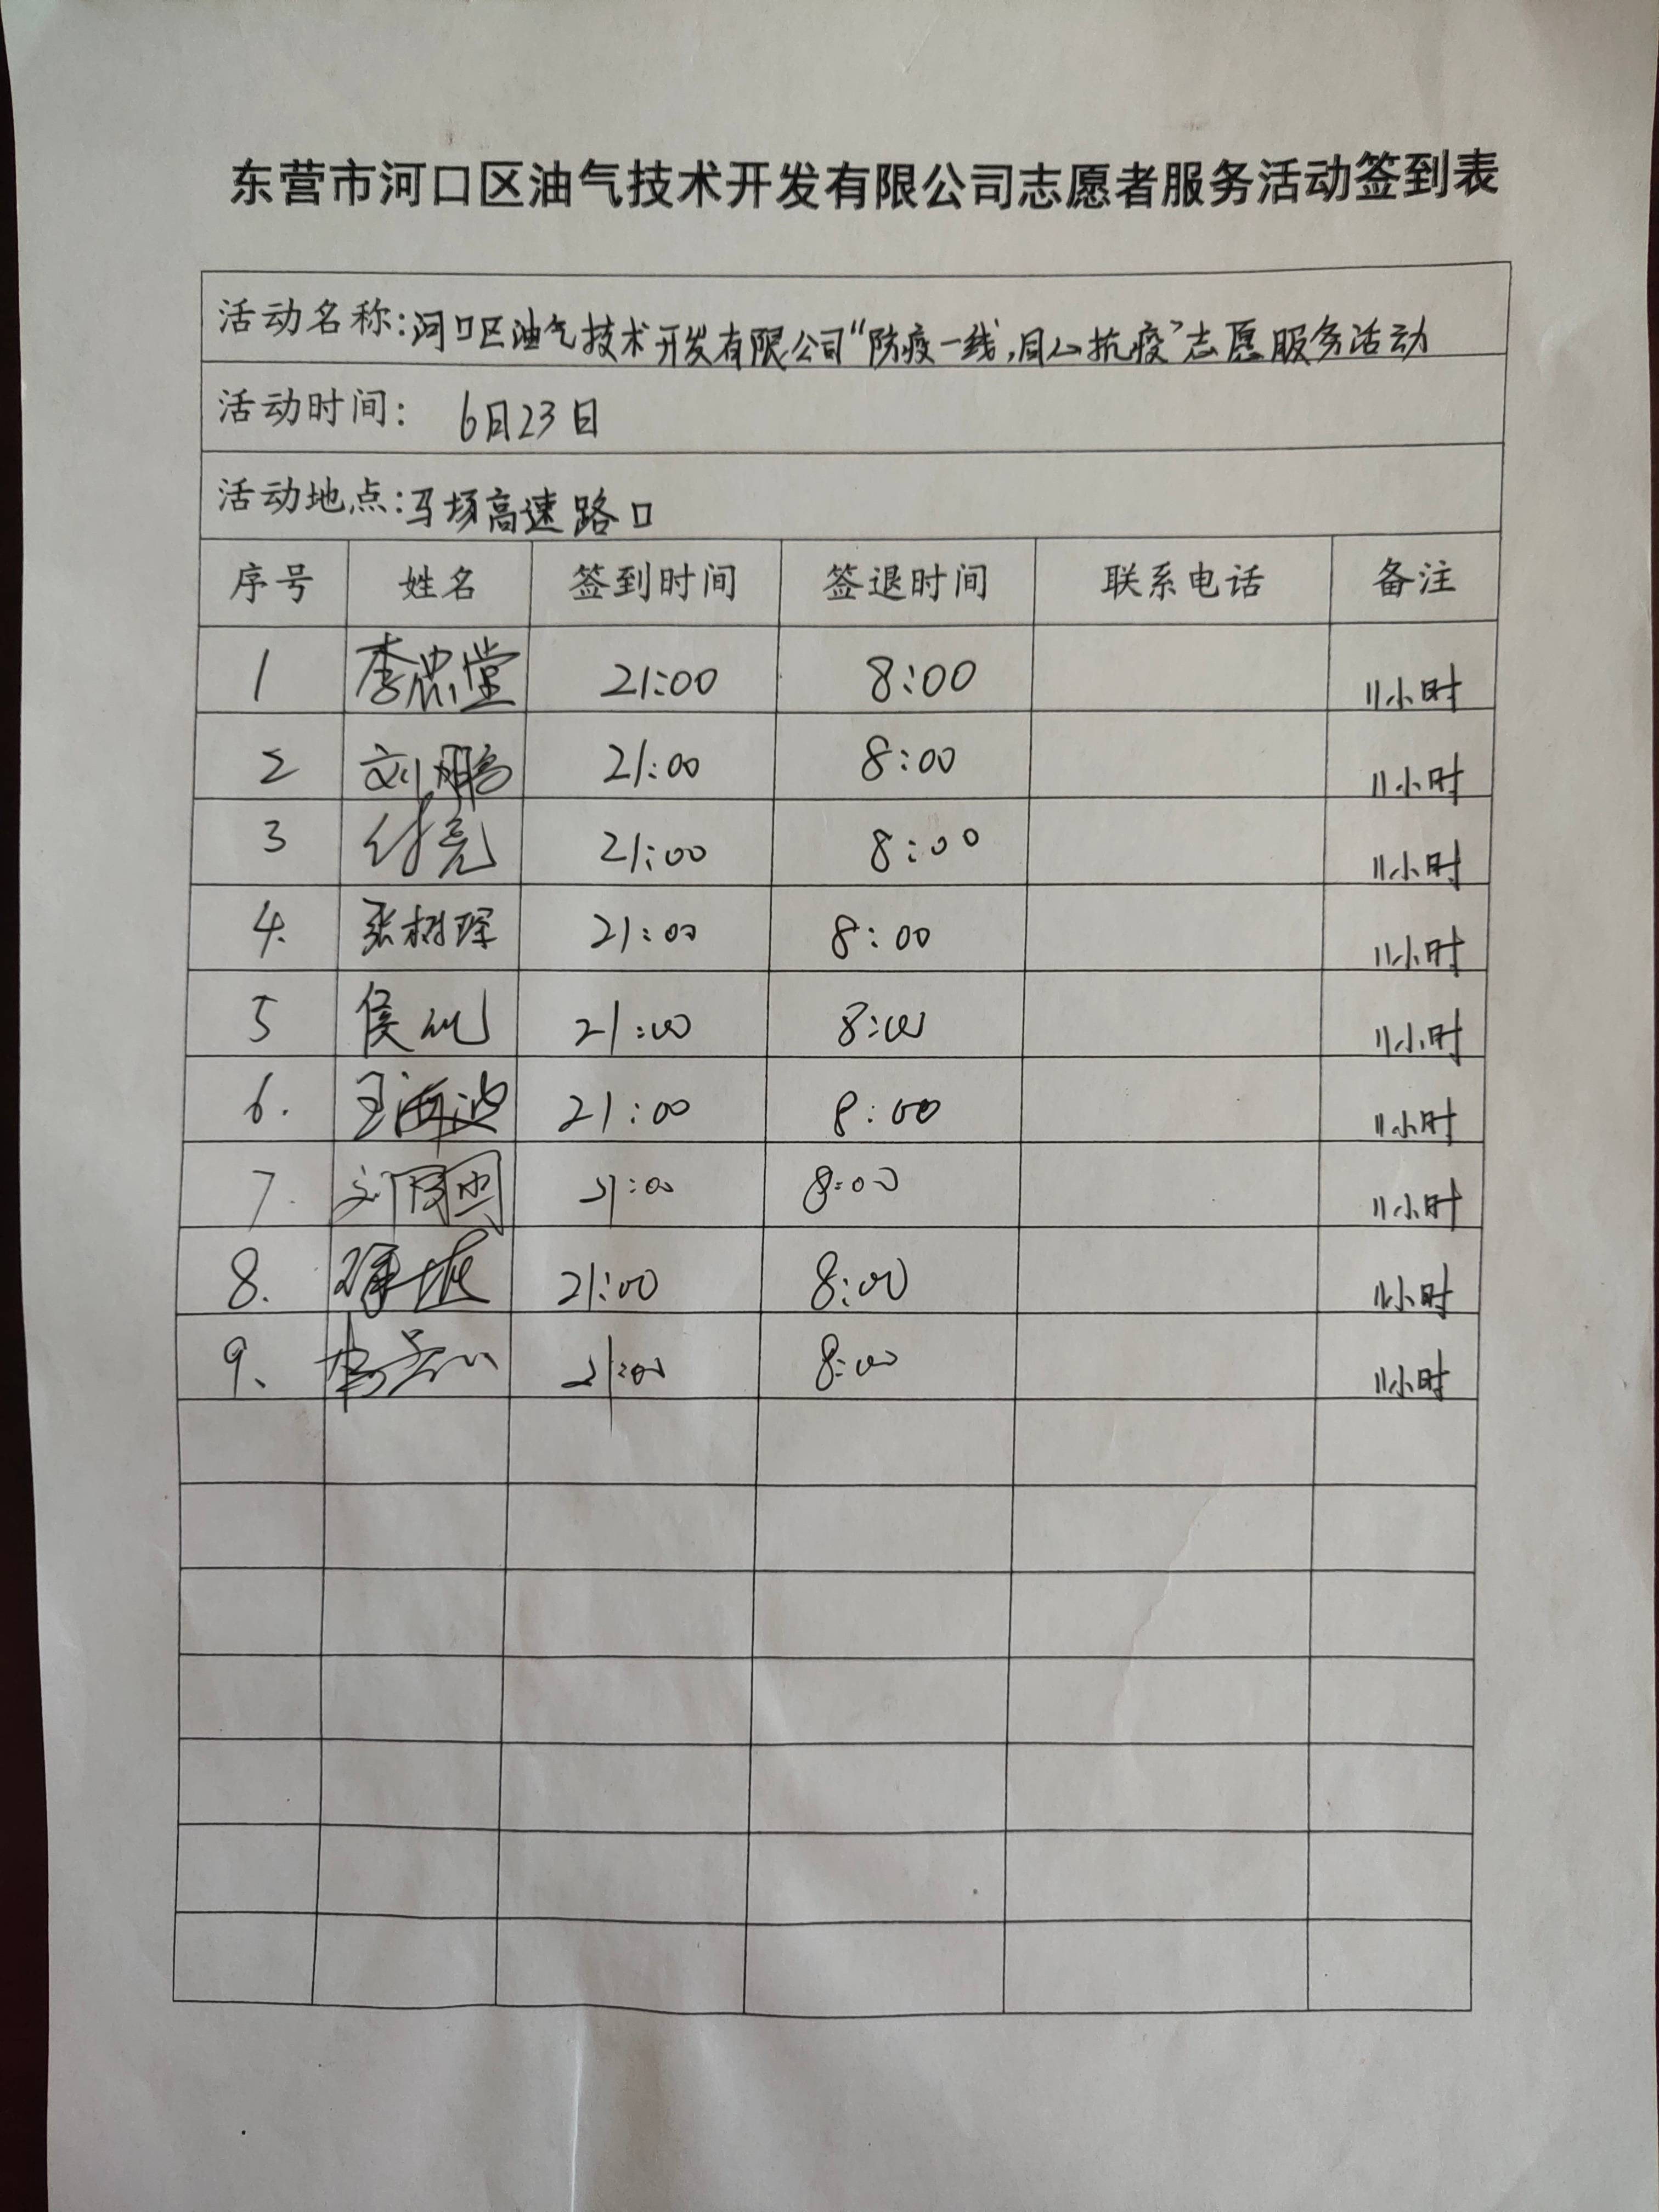 东营市河口区油气技术开发有限公司志愿者服务活动签到表
活动名称:河口区油气技术开发有限公司“防疫一线,同心抗疫”志愿服务活动
活动时间: 6月23日
活动地点:马场高速路口
序号 姓名 签到时间 签退时间 联系电话 备注
1 李忠堂 21:00 8:00 11小时
2 刘鹏 21:00 8:00 11小时
3 付亮 21:00 8:00 11小时
4. 张树琛 21:00 8:00 11小时
5 侯 21:00 8:00 11小时
6. 王海波 21:00 8:00 11小时
7. 刘 21:00 8:00 11小时
8. 21:00 8:00 11小时
9、 21:00 8:00 11小时